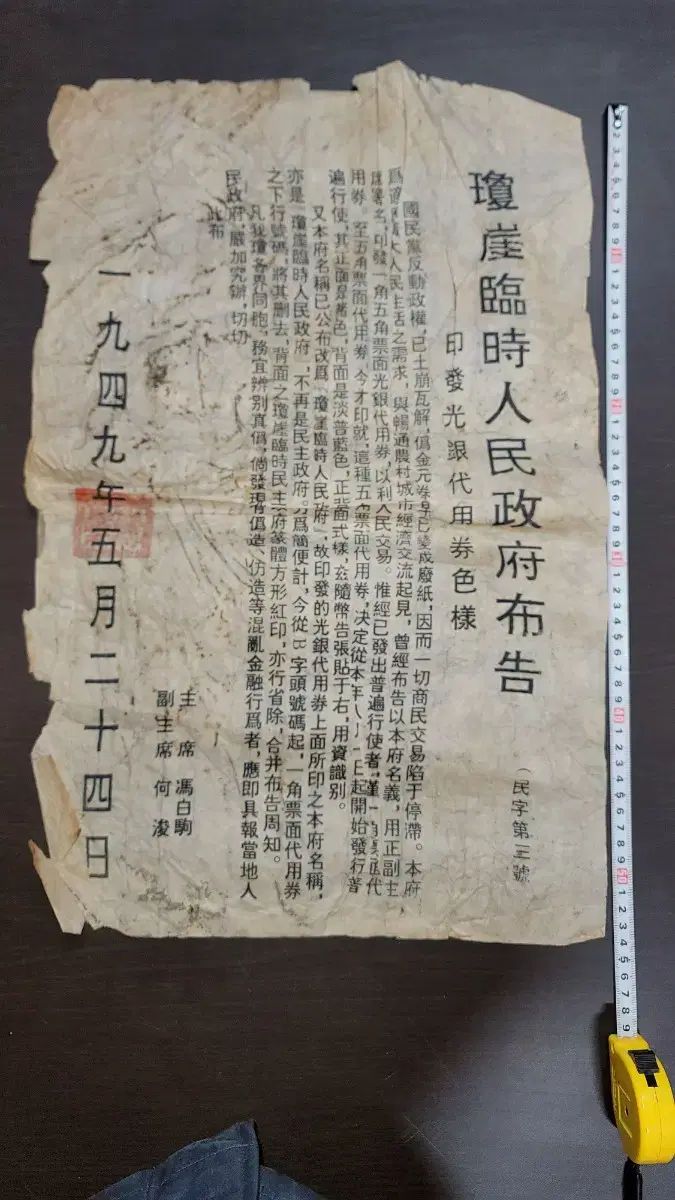 瓊崖臨時人民政府布告
(民字第三號)
印發光銀代用券色樣
國民黨反動政權,已土崩瓦解,僞金元券早已變成廢紙,因而一切商民交易陷于停滯。本府
爲 大人民生活之需求,與暢通農村城市經濟交流起見,曾經布告以本府名義,用正副主
署名,印發一角五角票面光銀代用券,以利人民交易。惟經已發出普遍行使者,僅一角票面代
用券。至五角票面代用券,今才印就,這種五角票面代用券,决定從本年 月 日起開始發行普
遍行使,其正面是 色,背面是淡普藍色,正背面式樣,茲隨幣告張貼于右,用資識別。
又本府名稱已公布改爲「瓊崖臨時人民政府」,故印發的光銀代用券上面所印之本府名稱,
亦是「瓊崖臨時人民政府」,不再是民主政府。另爲簡便計,今從B字頭號碼起,一角票面代用券
之下行號碼,將其刪去,背面之瓊崖臨時民主政府篆體方形紅印,亦行省除,合并布告周知。
凡我瓊各界同胞,務宜辨別真僞,倘發現有僞造、仿造等混亂金融行爲者,應即具報當地人
民政府,嚴加究辦,切切
此布
主席 馮白駒
副主席 何浚
一九四九年五月二十四日
2 3 4 5 6 7 8 9 10 1 2 3 4 5 6 7 8 9 20 1 2 3 4 5 6 7 8 9 30 1 2 3 4 5 6 7 8 9 40 1 2 3 4 5 6 7 8 9 50 1 2 3 4 5 6 7 8 9